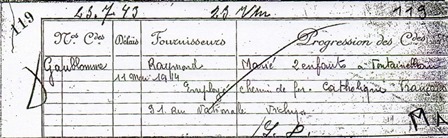 119 25.7.43 23 Uhr 119
Nos Cdes Délais Fournisseurs Progression des Cdes
Gaublomme Raymond Marié 2 enfants à Fontainebleau
11 Mai 1914 Employé chemin de fer. Catholique Français
91 Rue Nationale Vichy